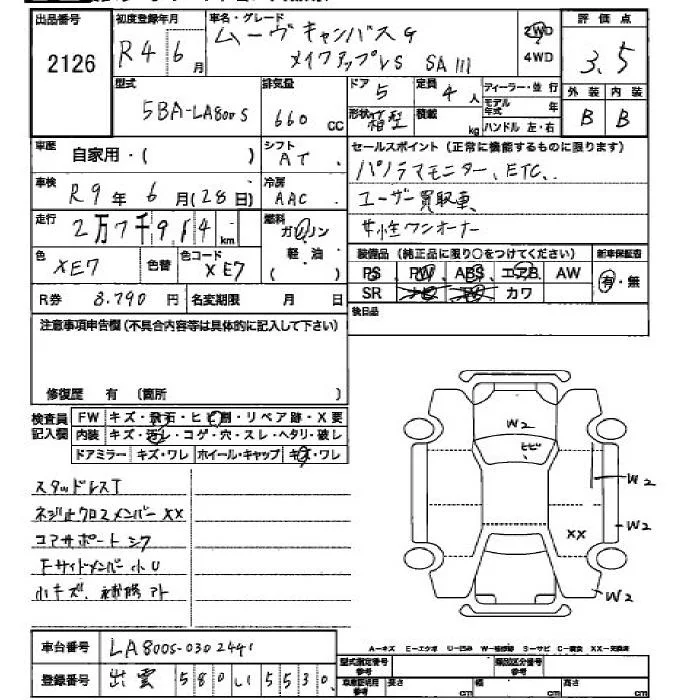 出品番号 2126
初度登録年月 R4 6月
車名・グレード ムーヴ キャンバス G
メイクアップ VS SAⅢ
2WD
4WD
評価点 3.5
型式 5BA-LA800S
排気量 660 CC
ドア 5
定員 4人
形状 箱型
積載 kg
ディーラー・並行
モデル年式 年
ハンドル 左・右
外装 B
内装 B
車歴 自家用・( )
シフト AT
セールスポイント(正常に機能するものに限ります)
パノラマモニター、ETC.
ユーザー買取車
女性ワンオーナー
車検 R9年 6月(28日)
冷房 AAC
走行 2万7千914 km
燃料 ガソリン
軽・油
( )
色 XE7
色替
色コード XE7
装備品(純正品に限り○をつけてください)
新車保証書
PS PW ABS エアB AW
SR ナビ TV カワ
有・無
R券 8.790円
名変期限 月 日
後日品
注意事項申告欄(不具合内容等は具体的に記入して下さい)
修復歴 有 (箇所 )
検査員記入欄
FW キズ・飛石・ヒビ割・リペア跡・X要
内装 キズ・汚レ・コゲ・穴・スレ・ヘタリ・破レ
ドアミラー キズ・ワレ ホイール・キャップ キズ・ワレ
スタッドレスT
ネジ止クロスメンバーXX
コアサポートシワ
Fサイドメンバー小U
小キズ、補修アト
W2
ヒビ
W2
W2
XX
W2
車台番号 LA800S-0302441
登録番号 出雲 580 い 5530
A-キズ E-エクボ U-凹み W-補修跡 S-サビ C-腐食 XX-交換済
型式指定番号
類別区分番号
車庫証明用参考
長さ cm
幅 cm
高さ cm